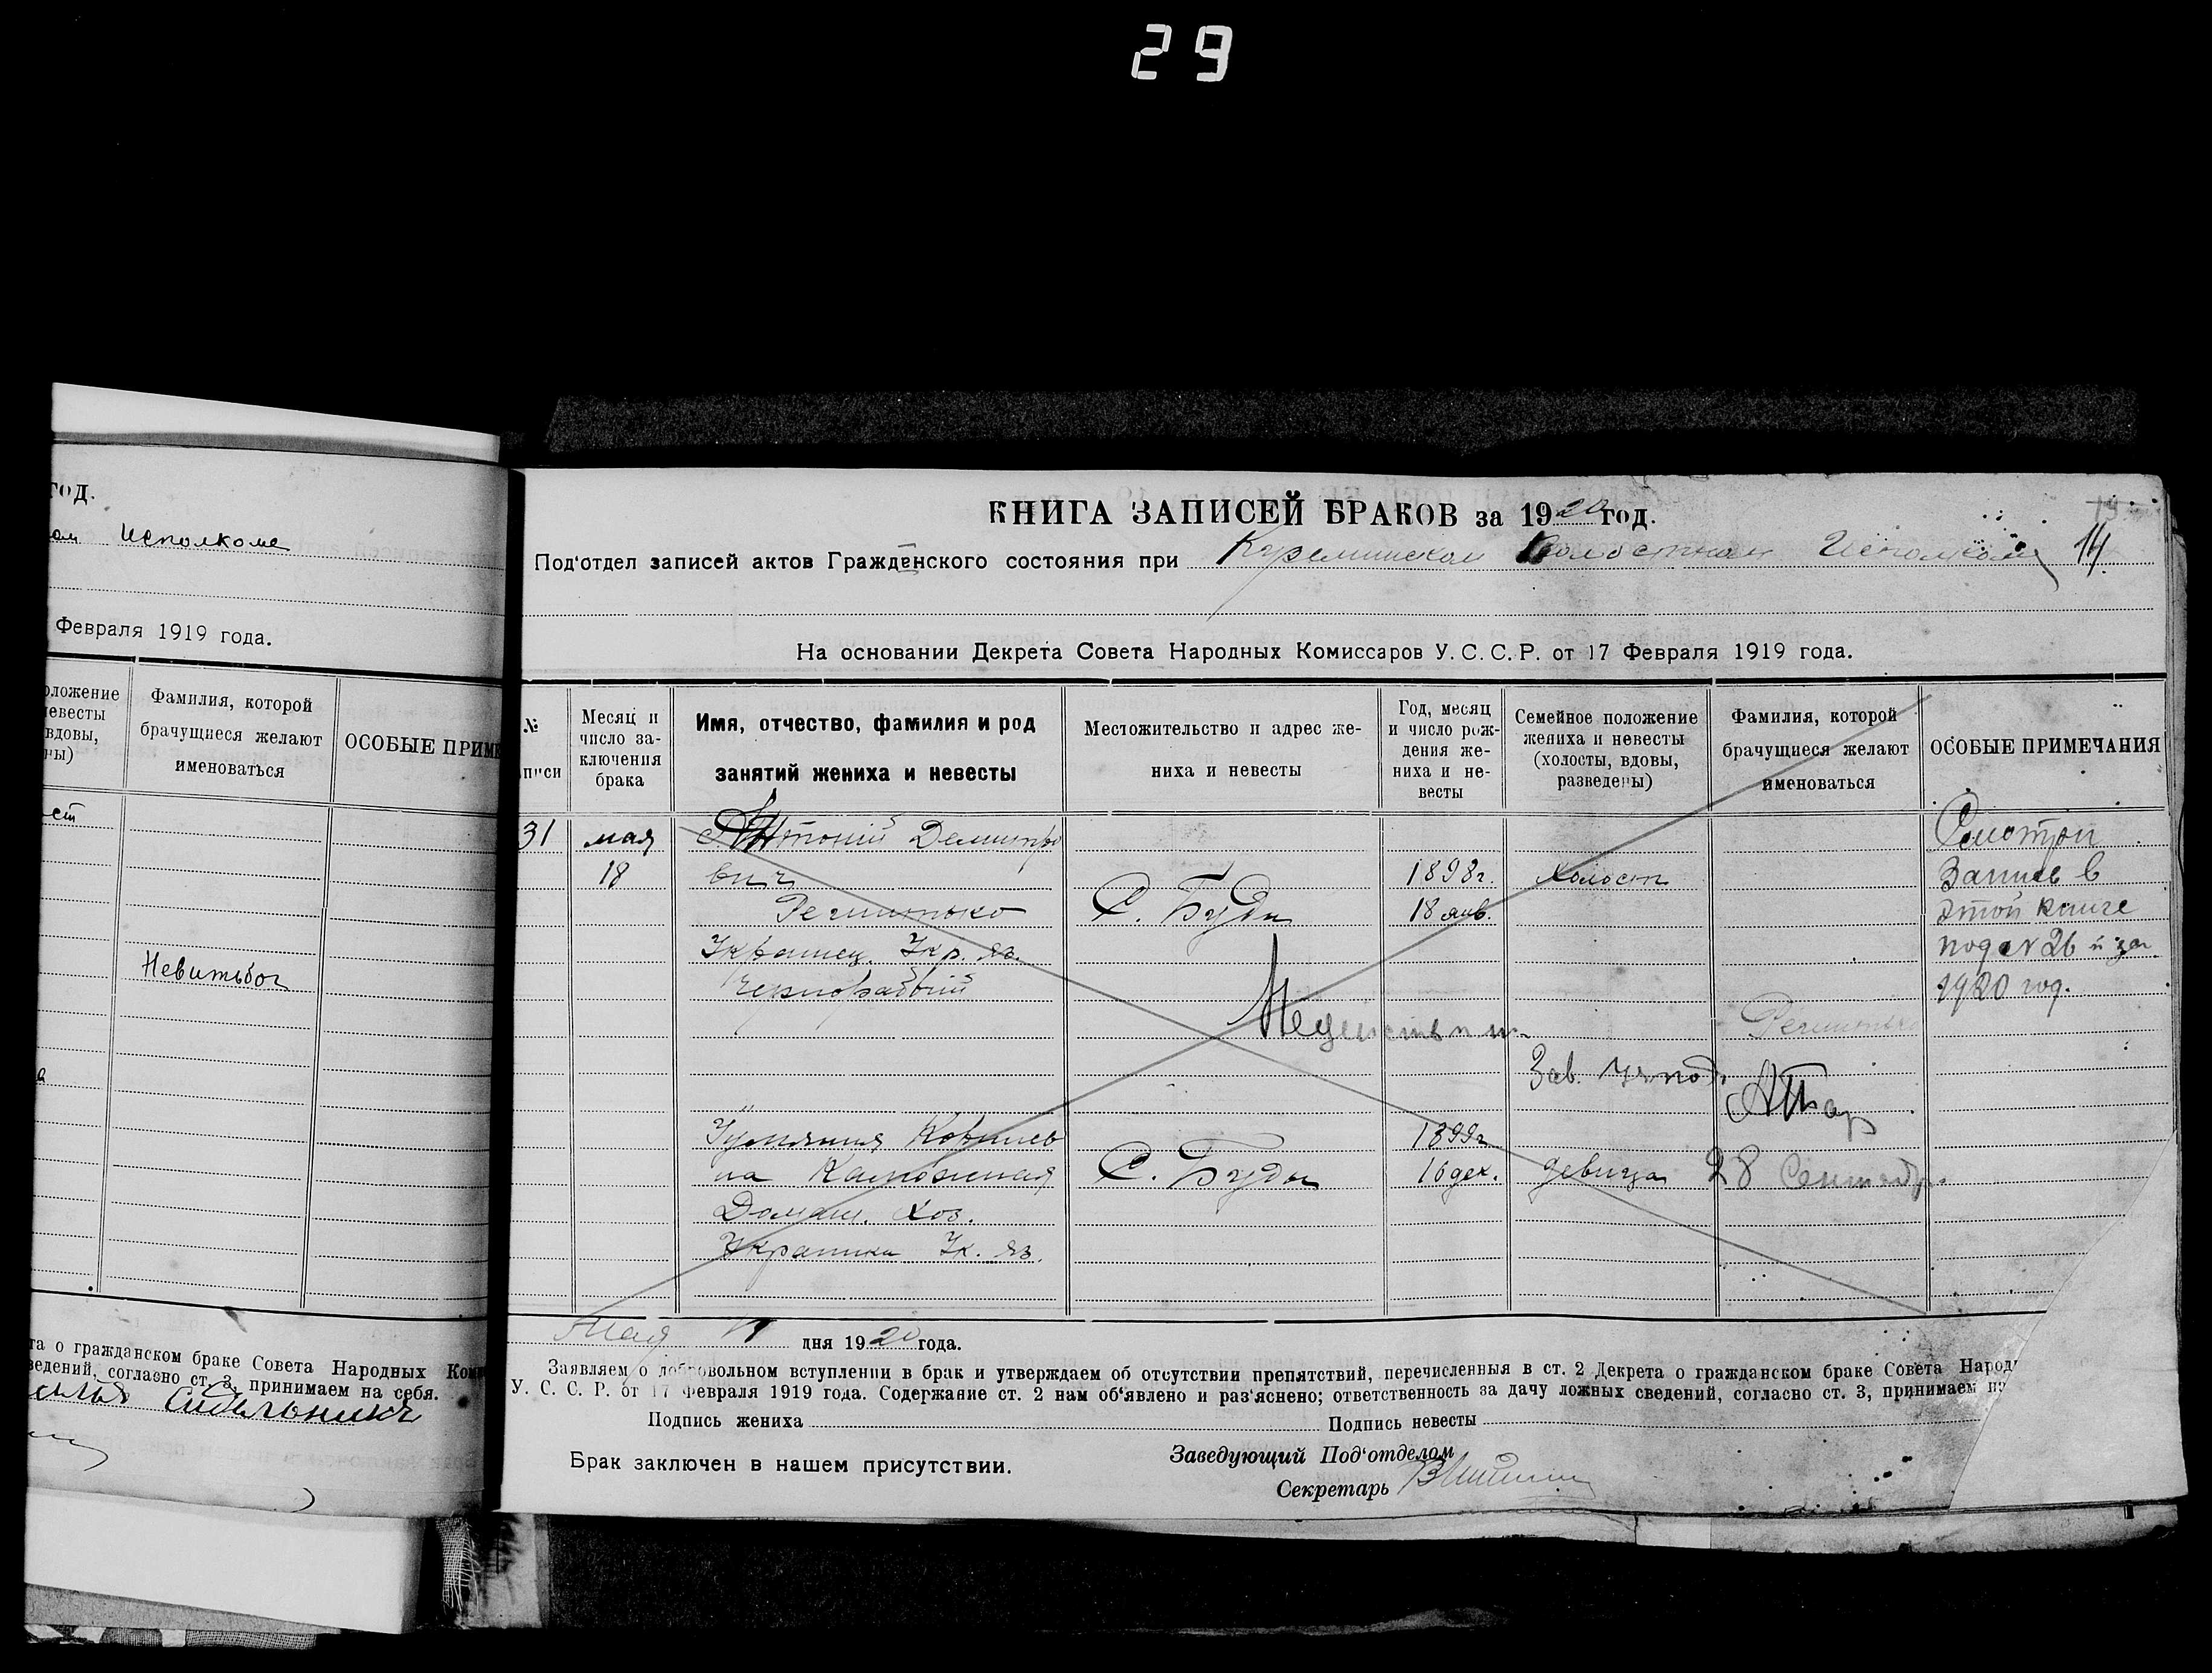 29
год.
ом Исполкоме
Февраля 1919 года.
оложение
невесты
вдовы,
ны)
Фамилия, которой
брачущиеся желают
именоваться
ОСОБЫЕ ПРИМЕ
ст
Невитьбог
а
та о гражданском браке Совета Народных Коми
ведений, согласно ст. 3, принимаем на себя.
Сидельник
КНИГА ЗАПИСЕЙ БРАКОВ за 1920 год.
Под'отдел записей актов Гражданского состояния при Волостном Исполкоме 14
На основании Декрета Совета Народных Комиссаров У. С. С. Р. от 17 Февраля 1919 года.
№
писи
Месяц и
число за-
ключения
брака
Имя, отчество, фамилия и род
занятий жениха и невесты
Местожительство и адрес же-
ниха и невесты
Год, месяц
и число рож-
дения же-
ниха и не-
весты
Семейное положение
жениха и невесты
(холосты, вдовы,
разведены)
Фамилия, которой
брачущиеся желают
именоваться
ОСОБЫЕ ПРИМЕЧАНИЯ
31 мая Антоний Демитро Смотри
18 вич 1898г. Холост Запись в
С. Буды 18 янв. этой книге
Украинец. Укр. яз. под № 26 й за
Чернорабочий 1920 год.
Недействит
Зав.
1899г
на С. Буды 16 дек. девица 28 Сентябр.
Домаш. Хоз.
Украинка Ук. яз.
Мая дня 1920 года.
Заявляем о добровольном вступлении в брак и утверждаем об отсутствии препятствий, перечисленныя в ст. 2 Декрета о гражданском браке Совета Народ
У. С. С. Р. от 17 Февраля 1919 года. Содержание ст. 2 нам об'явлено и раз'яснено; ответственность за дачу ложных сведений, согласно ст. 3, принимаем на
Подпись жениха Подпись невесты
Брак заключен в нашем присутствии. Заведующий Под'отделом
Секретарь